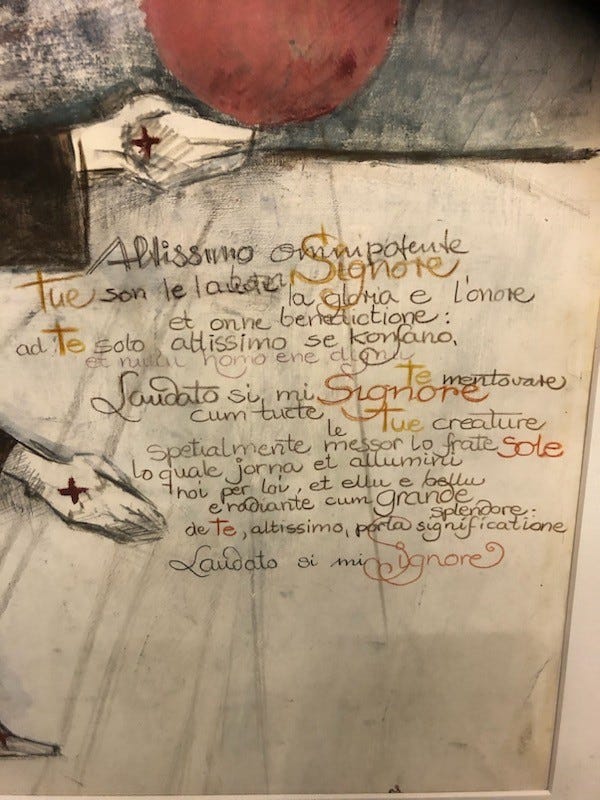 Altissimo omnipotente Signore,
Tue son le la la gloria e l'onore
et onne benedictione:
ad Te solo, altissimo se konfano,
et nullu homo ene dignu
Te mentovare
Laudato si, mi Signore
cum tucte le Tue creature
spetialmente messor lo frate sole
lo quale jorna et allumini
noi per loi, et ellu e bellu
e radiante cum grande
splendore:
de Te, altissimo, porta significatione
Laudato si mi Signore